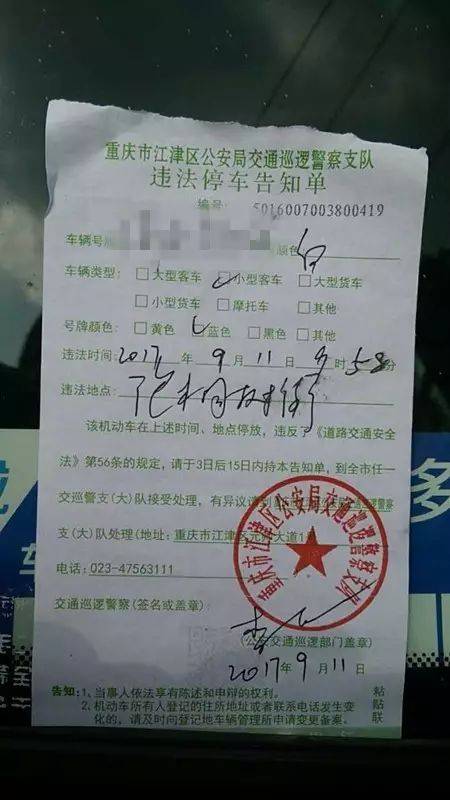 重庆市江津区公安局交通巡逻警察支队
违法停车告知单
编号: 5016007003800419
车辆号 颜色: 白
车辆类型: □大型客车 □小型客车 □大型货车
□小型货车 □摩托车 □其他
号牌颜色: □黄色 □蓝色 □黑色 □其他
违法时间: 2017 年 9 月 11 日 时 58 分
违法地点: 街
该机动车在上述时间、地点停放,违反了《道路交通安全
法》第56条的规定,请于3日后15日内持本告知单,到全市任一
交巡警支(大)队接受处理,有异议请到
支(大)队处理(地址:重庆市江津区 大道1
电话: 023-47563111
交通巡逻警察(签名或盖章):
重庆市江津区公安局交通巡逻警察支队
(公安交通巡逻部门盖章)
2017年 9 月 11 日
告知:1、当事人依法享有陈述和申辩的权利。
2、机动车所有人登记的住所地址或者联系电话发生变
化的,请及时向登记地车辆管理所申请变更备案。
粘贴联
多
车